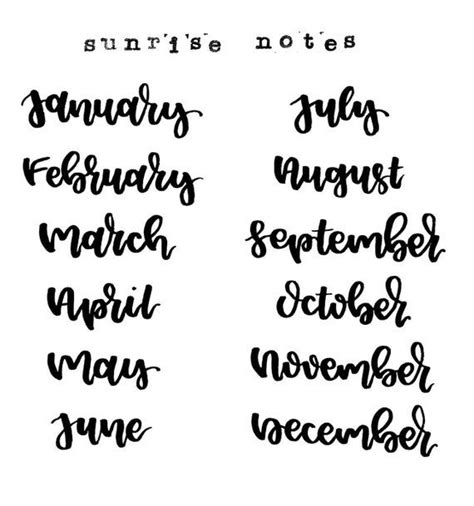 sunrise notes
January
February
March
April
May
June
July
August
September
October
November
December